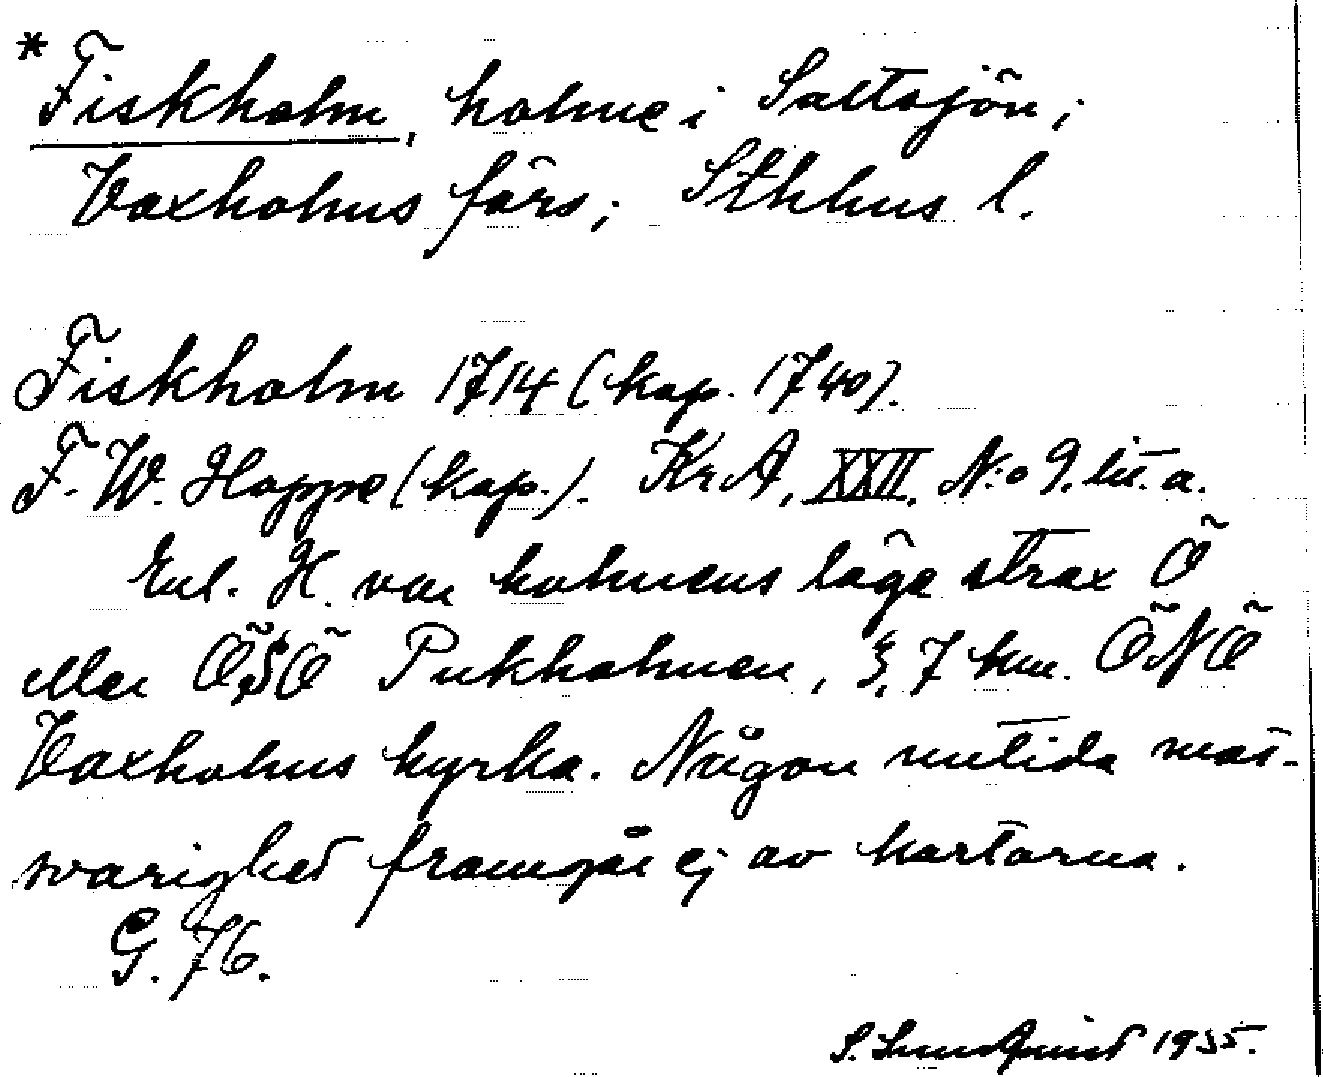 *Fiskholm, holme i Saltsjön;
Vaxholms förs; Sthlms l.
Fiskholm 1714 (kop. 1740).
F. W. Hoppe (kop.). KrA, XXII, N:o 9. lit. a.
Enl. H. var holmens läge strax Ö
eller ÖSÖ Pukholmen, 3,7 km. ÖNÖ
Vaxholms kyrka. Någon nutida mot-
svarighet framgår ej av kartorna.
G. 76.
S. Lundquist 1955.